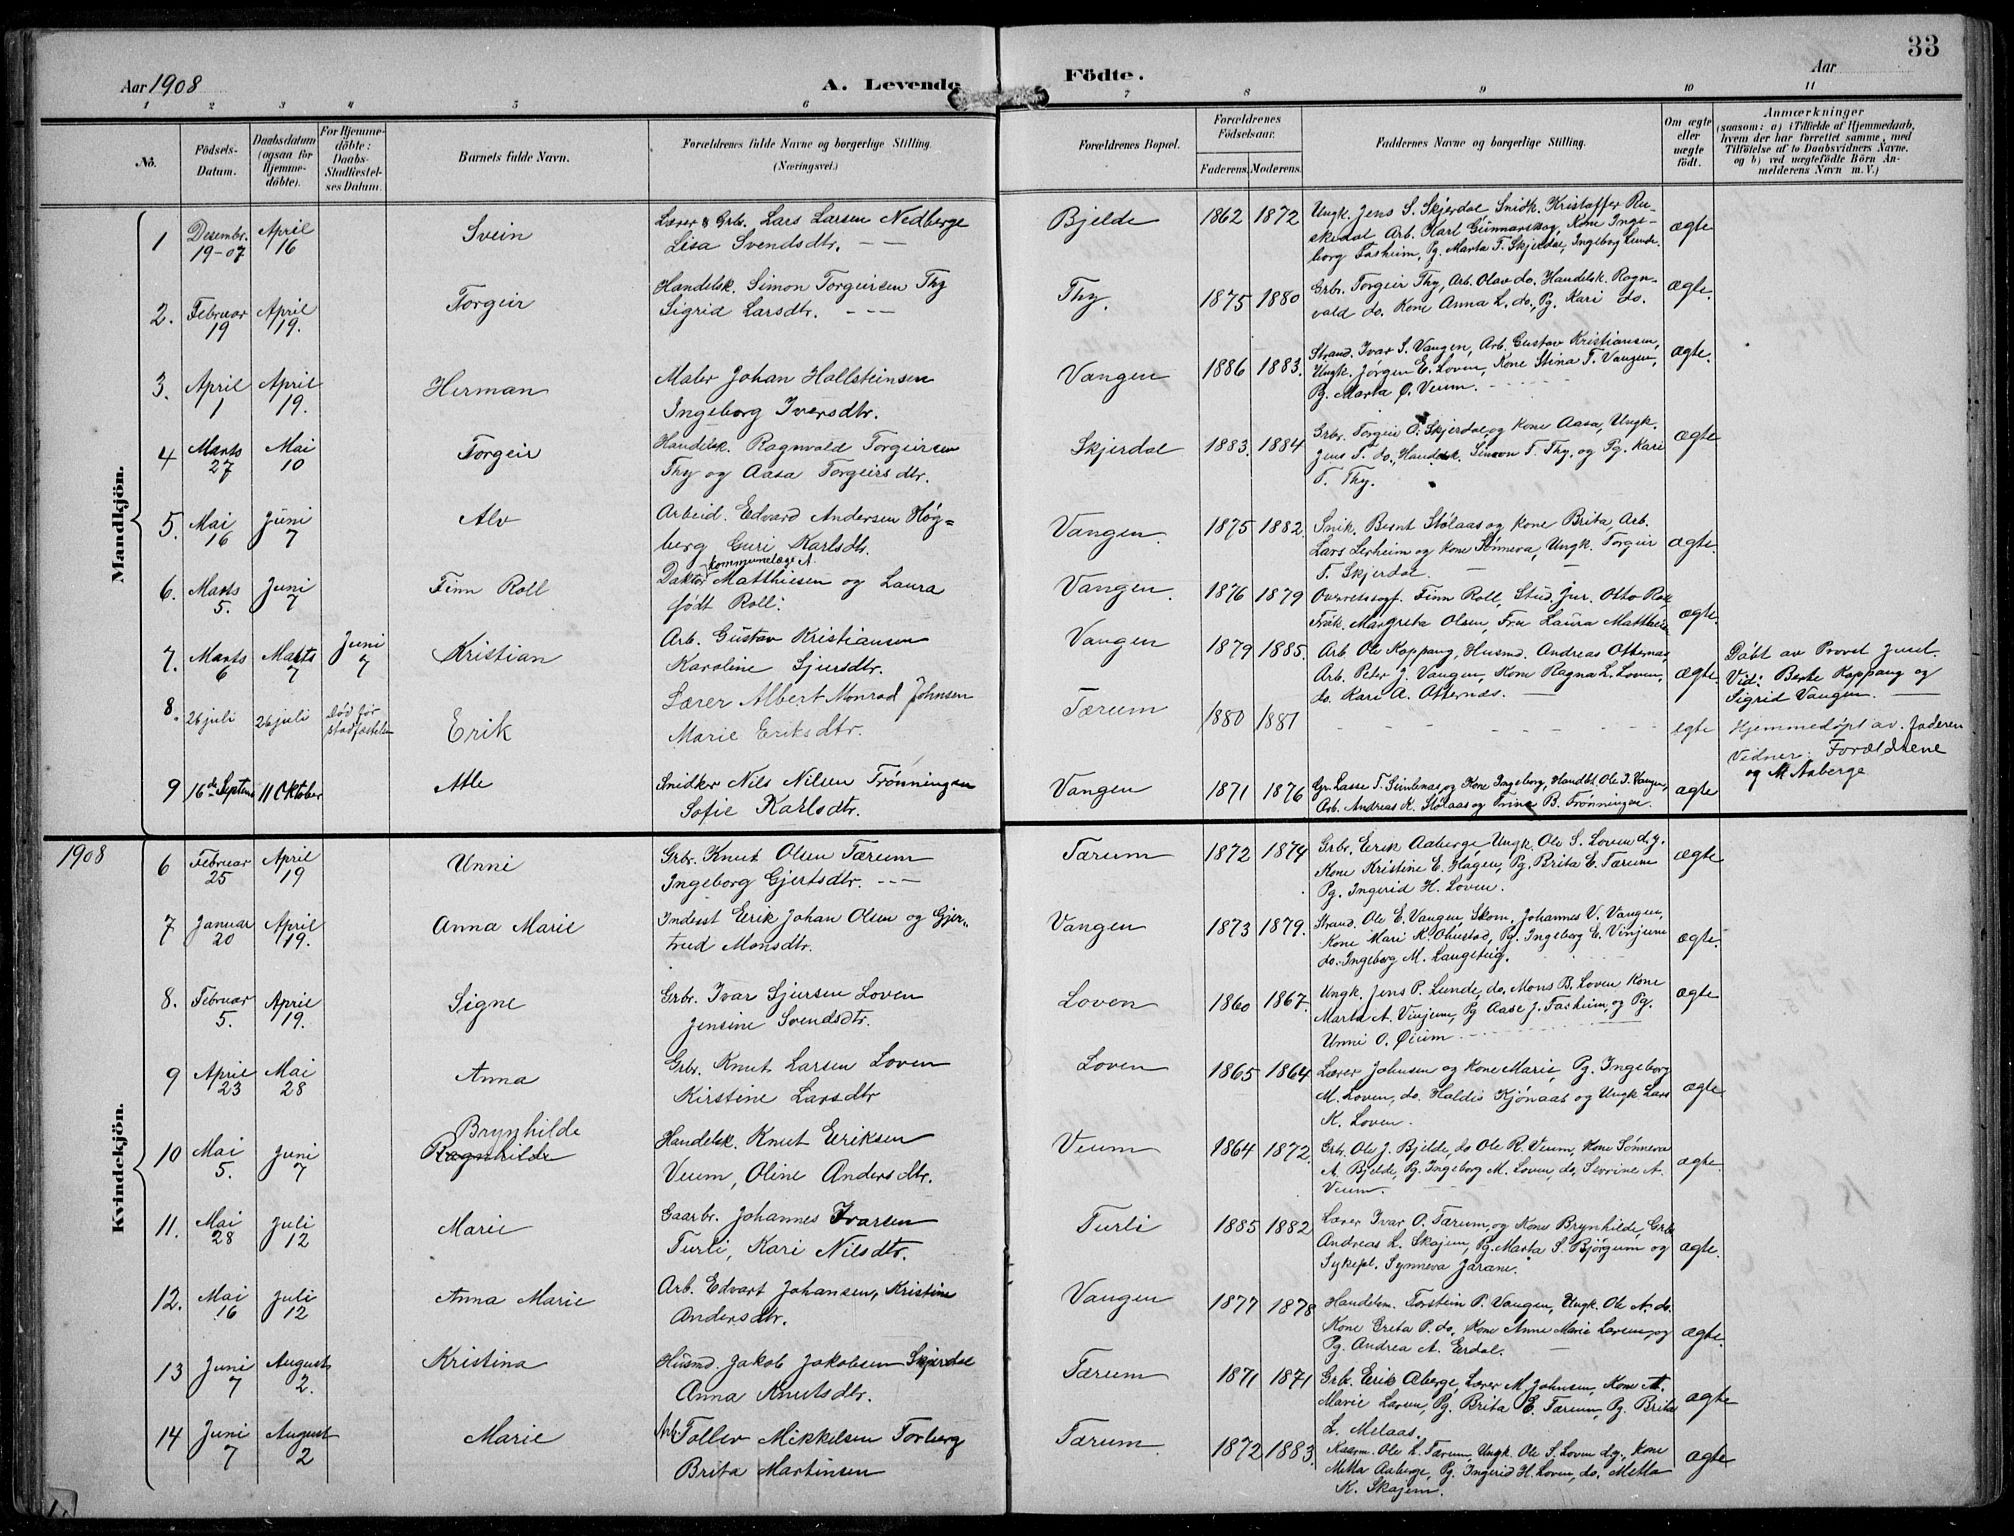 33
Aar 1908
A. Levende
Födte.
Aar
1 2 3 4 5 6 7 8 9 10 11
No.
Födsels-
Datum.
Daabsdatum
(ogsaa for
Hjemme-
döbte).
For Hjemme-
döbte:
Daabs-
Stadfæstel-
ses Datum.
Barnets fulde Navn.
Forældrenes fulde Navne og borgerlige Stilling.
(Næringsvei.)
Forældrenes Bopæl.
Forældrenes
Födselsaar.
Faderens. Moderens.
Faddernes Navne og borgerlige Stilling.
Om ægte
eller
uægte
født.
Anmærkninger
(saasom: a) i Tilfælde af Hjemmedaab,
hvem der har forrettet samme, med
Tilföielse af to Daabsvidners Navne.
og b) ved uægtefödte Börn An-
melderens Navn m. V.)
Mandkjön.
1 Desembr. 19-07 April 16 Svein
Lærer & Grb. Lars Larsen Nedberge
Lisa Svendsdtr. — —
Bjelde 1862 1872
Ungk. Jens S. Skjerdal, Snidk. Kristoffer Ru-
skedal Arb. Karl Gunnarskog, Kone Inge-
borg Fasheim, Pg. Marta T. Skjerdal, Ingeborg Lunde.
ægte
2. Februar 19 April 19. Torgeir
Handelsk. Simon Torgeirsen Thy
Sigrid Larsdtr. — — —
Thy. 1875 1880
Grbr. Torgeir Thy, Arb. Olav do. Handelsk. Ragn-
vald do. Kone Anna L. do., Pg. Kari do.
ægte.
3. April 1 April 19. Herman
Maler Johan Hallsteinsen
Ingeborg Iversdtr.
Vangen 1886 1883.
Strand. Ivar S. Vangen, Arb. Gustav Kristiansen,
Ungk. Jørgen E. Loven, Kone Stina T. Vangen,
Pg. Marta O. Veum.
ægte.
4 Marts 27 Mai 10 Torgeir
Handelsk. Ragnvald Torgeirsen
Thy og Aasa Torgeirsdtr.
Skjerdal 1883. 1884
Grbr. Torgeir O. Skjerdal, og Kone Aasa, Ungk.
Jens T. do., Handelsk. Simon T. Thy. og Pg. Kari
T. Thy.
ægte
5. Mai 16 Juni 7 Alv
Arbeid. Edvard Andersen Høg=
berg Guri Karlsdtr.
Vangen 1875 1882.
Snik. Bernt Stølaas og Kone Brita, Arb.
Lars Lerheim og Kone Sønneva, Ungk. Torgeir
T. Skjerdal.
ægte.
6. Marts 5. Juni 7 Finn Roll
kommunelæge A.
Doktor Matthiesen og Laura
født Roll.
Vangen. 1876 1879
Overretssagf. Finn Roll, Stud. Jur. Otto Roll,
Frøk. Margreta Olsen, Fru Laura Matthiesen
ægte.
7. Marts 6 Marts 7 Juni 7 Kristian
Arb. Gustav Kristiansen
Karoline Sjursdtr.
Vangen 1879 1885.
Arb. Ole Koppang, Husmd. Andreas Otternes,
Arb. Peter J. Vangen, Kone Ragna L. Loven,
do. Kari A. Otternes.
ægte.
Døbt av Provst Juul.
Vid: Berte Koppang og
Sigrid Vangen.
8. 26 juli 26 juli Død før stadfæstelsen Erik
Lærer Albert Monrad Johnsen
Marie Eriksdtr.
Tærum 1880 1881
egte
Hjemmedøpt av faderen
Vidner: Forældrene
og M. Aaberge
9 16de Septemb 11 Oktober Atle
Snidker Nils Nilsen Trønningen
Sofie Karlsdtr.
Vangen 1871 1876
Gr. Lasse T. Simlenas og Kone Ingeborg, Handbt. Ole I. Vangen,
Arb. Andreas K. Stølaas og Trina B. Frønningen.
ægte
1908
Kvindekjön.
6 Februar 25 April 19 Unni
Grbr. Knut Olsen Tærum
Ingeborg Gjertsdtr. — —
Tærum 1872 1874
Grbr. Erik Aaberge, Ungk. Ole S. Loven d.y.
Kone Kristine E. Hagen, Pg. Brita E. Tærum
Pg. Ingerid H. Loven.
ægte
7 Januar 20 April 19. Anna Marie
Inderst Eerik Johan Olsen og Gjer-
trud Monsdtr.
Vangen 1873 1879.
Strand. Ole E. Vangen, Skom. Johannes V. Vangen,
Kone Mari K. Ohnstad, Pg. Ingeborg E. Vinjum
do. Ingeborg M. Langeteig.
ægte.
8. Februar 5. April 19. Signe
Grbr. Ivar Sjursen Loven
Jensine Svendsdtr.
Loven 1860 1867.
Ungk. Jens P. Lunde, do. Mons B. Loven Kone
Marta A. Vinjum, Pg Aase J. Fasheim, og Pg.
Unni O. Øium.
ægte
9 April 23 Mai 28 Anna
Grbr. Knut Larsen Loven
Kirstine Larsdtr
Loven 1865 1864
Lærer Johnsen og Kone Marie, Pg. Ingeborg
M. Loven, do. Haldis Kjønaas og Ungk. Lars
K. Loven.
ægte
10 Mai 5. Juni 7 Brynhilde
Ragnhilde
Handelsk. Knut Eeriksen
Veum, Oline Andersdtr.
Veum 1864 1872.
Grb. Ole J. Bjelde, do Ole R. Veum, Kone Sønneva
A. Bjelde, Pg. Ingeborg M. Loven, do. Severine A.
Veum.
ægte.
11. Mai 28 Juli 12 Marie
Gaarbr. Johannes Ivarsen
Turli, Kari Nilsdtr.
Turli 1885 1882
Lærer Ivar O. Tærum, og Kone Brynhilde, Grb.
Andreas L. Skajem, Pg. Marta S. Bjørgum og
Sykepl. Synneva Jarane.
ægte.
12. Mai 16 Juli 12 Anna Marie
Arb. Edvart Johansen, Kristine
Andersdtr.
Vangen 1877 1878
Handelsm. Torstein P. Vangen, Ungk. Ole A. do.
Kone Greta P. do., Kone Anne Marie Larsen, og
Pg. Andrea A. Erdal.
ægte
13 Juni 7 August 2. Kristina
Husmd. Jakob Jakobsen Skjerdal
Anna Knutsdtr.
Tærum 1871 1871
Grb. Erik Aberge, Lærer M. Johnsen, Kone A.
Marie Larsen, Pg. Brita E. Tærum, Pg. Brita
L. Melaas.
ægte
14 Juni 7 August 2 Marie
Arb. Tollev Mikkelsen Torberg
Brita Martinsen
Tærum 1872 1883.
Kaarm. Ole L. Tærum, Ungk. Ole S. Loven d.y., Kone
Metta Aaberge, Pg. Ingerid H. Loven, do. Metta
K. Skajem.
ægte